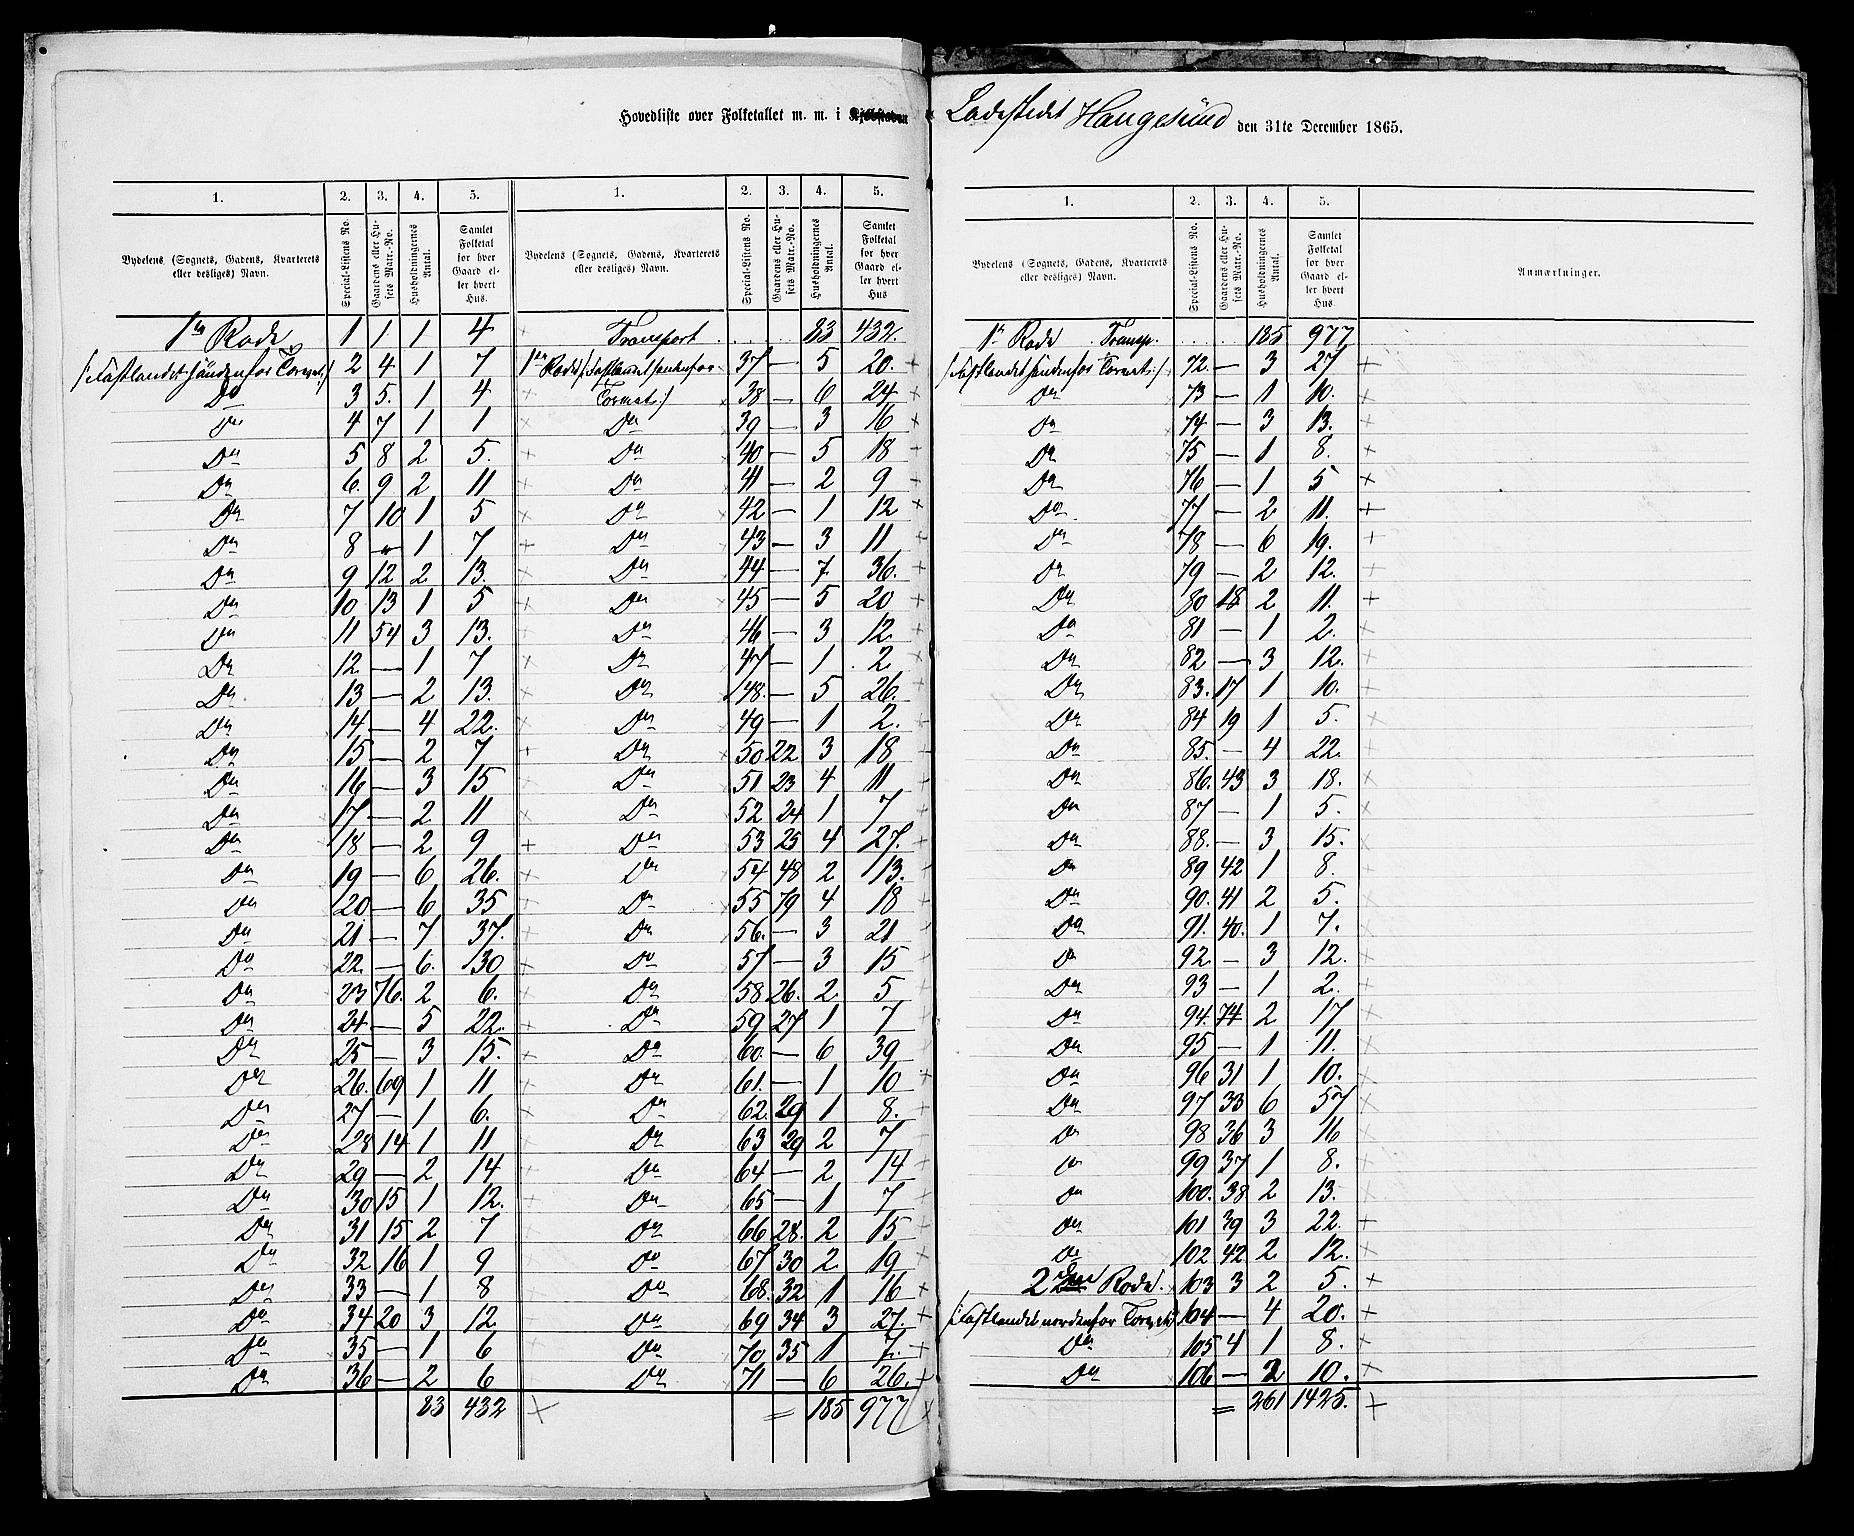 Hovedliste over Folketallet m. m. i Kjøbstaden Ladestedet Haugesund den 31te December 1865.
1. 2. 3. 4. 5. 1. 2. 3. 4. 5.
Bydelens (Sognets, Gadens, Kvarterets eller desliges) Navn. Special-Listens No. Gaardens eller Husets Matr.-No. Husholdningernes Antal. Samlet Folketal for hver Gaard eller hvert Hus.
Bydelens (Sognets, Gadens, Kvarterets eller desliges) Navn. Special-Listens No. Gaardens eller Husets Matr.-No. Husholdningernes Antal. Samlet Folketal for hver Gaard eller hvert Hus
1te Rode 1 1 1 4
(:Fastlandet søndenfor Torvet:) 2 4 1 7
Do 3 5. 1 4
Do 4 7 1 1
Do 5 8 2 5.
Do 6. 9 2 11
Do 7 10 1 5
Do 8 " 1 7
Do 9 12 2 13.
Do 10 13 1 5
Do 11 54 3 13.
Do 12 — 1 7
Do 13 — 2 13.
Do 14 — 4 22.
Do 15 — 2 7
Do 16 — 3 15
Do 17 — 2 11
Do 18 — 2 9
Do 19 — 6 26.
Do 20 — 6 35
Do 21 — 7 37.
Do 22 — 6. 30
Do 23 76. 2 6.
Do 24 — 5 22.
Do 25 — 3 15.
Do 26. 69 1 11
Do 27 — 1 6.
Do 28 14 1 11
Do 29 — 2 14
Do 30 15 1 12.
Do 31 15 2 7
Do 32 16 1 9
Do 33 — 1 8
Do 34 20 3 12
Do 35 — 1 6
Do 36 — 2 6
83 432
Transport 83 432.
1te Rode (:Fastlandet søndenfor 37 — 5 20.
Torvet:) 38 — 6 24
Do 39 — 3 16
Do 40 — 5 18
Do 41 — 2 9
Do 42 — 1 12
Do 43 — 3 11
Do 44 — 7 36.
Do 45 — 5 20
Do 46 — 3 12.
Do 47 — 1 2
Do 48. — 5 26.
Do 49 — 1 2.
Do 50 22 3 18
Do 51 23 4 11
Do 52 24 1 7
Do 53 25 4 27.
Do 54 48 2 13.
Do 55 79 4 18
Do 56. — 3 21
Do 57 — 3 15
Do 58 26. 2 5
Do 59 27 1 7
Do 60. — 6 39
Do 61. — 1 10
Do 62. 29 1 8.
Do 63 29 2 7
Do 64 — 2 14
Do 65 — 1 7
Do 66 28. 2 15
Do 67 30 2 19
Do 68. 32 1 16
Do 69 34 3 27.
Do 70 35 1 7.
Do 71 — 6 26.
= 185 977
1. 2. 3. 4. 5.
Bydelens (Sognets, Gadens, Kvarterets eller desliges) Navn. Special-Listens No. Gaardens eller Husets Matr.-No. Husholdningernes Antal. Samlet Folketal for hver Gaard eller hvert Hus Anmærkninger.
1te Rode Transp. 185 977
(:Fastlandet søndenfor Torvet:) 72. — 3 27
Do 73 — 1 10.
Do 74 — 3 13.
Do 75 — 1 8.
Do 76 — 1 5
Do 77 — 2 11.
Do 78 — 6 19.
Do 79 — 2 12.
Do 80 18 2 11.
Do 81 — 1 2.
Do 82 — 3 12.
Do 83. 17 1 10.
Do 84 19 1 5.
Do 85. — 4 22.
Do 86. 43 3 18.
Do 87 — 1 5.
Do 88. — 3 15.
Do 89 42 1 8.
Do 90. 41 2 5.
Do 91. 40. 1 7.
Do 92. — 3 12.
Do 93 — 1 2.
Do 94. 74 2 17
Do 95 — 1 11.
Do 96 31 1 10.
Do 97 33 6 57
Do 98 36 3 16
Do 99 37 1 8.
Do 100. 38 2 13.
Do 101 39 3 22.
Do 102 42 2 12.
2den Rode. 103 3 2 5.
(:Fastlandet nordenfor Torvet:) 104 — 4 20.
Do 105 4 1 8.
Do 106 — 2 10.
= 261 1425.